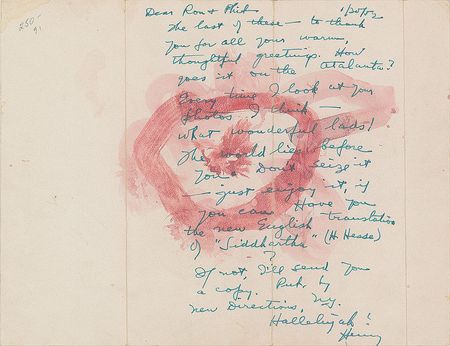 250
Dear Ron & Phil 1/20/52
The last of these — to thank
you for all your warm,
thoughtful greetings. How
goes it on the Atalanta?
Every time I look at your
photos I think —
what wonderful lads!
The world lies before
you. Don't seize it
— just enjoy it, if
you can. Have you
the new English translation
of "Siddhartha" (H. Hesse)
?
If not, I'll send you
a copy. Pub. by
New Directions, N.Y.
Hallelujah!
Henry